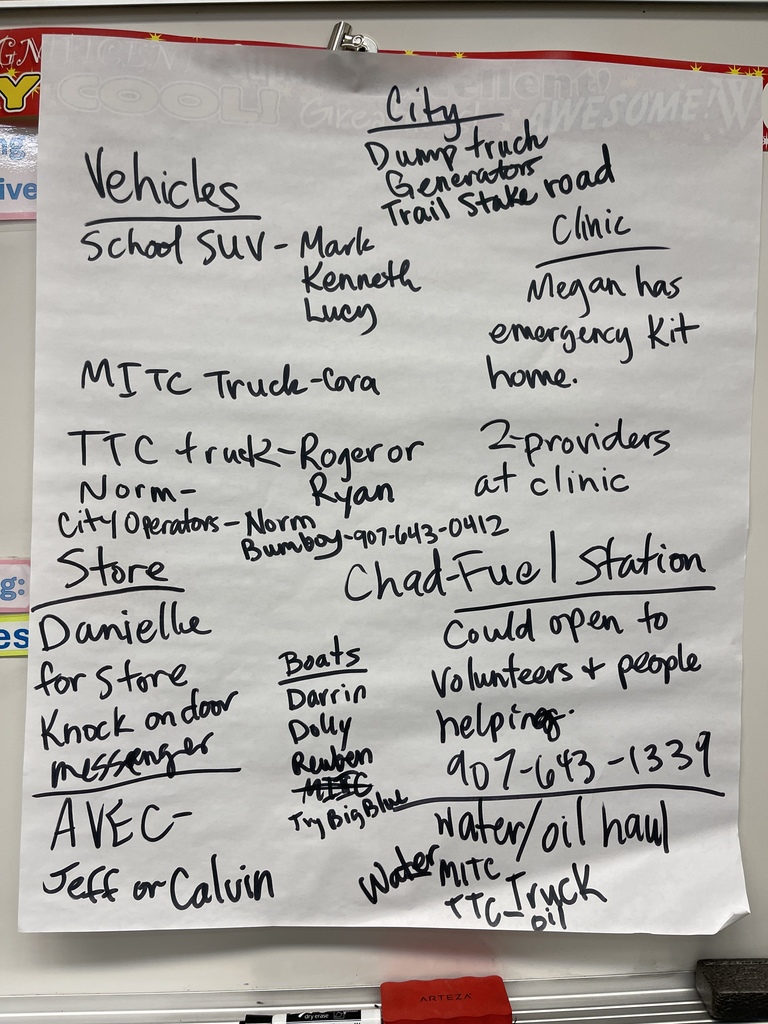 City
Dump truck
Generators
Trail Stake road
Vehicles
School SUV - Mark
Kenneth
Lucy
Clinic
Megan has
emergency Kit
home.
MITC Truck - Cora
TTC truck - Roger or
Norm - Ryan
2-providers
at clinic
City Operators - Norm
Bumboy - 907-643-0412
Store
Danielle
for Store
Knock on door
messenger
Chad - Fuel Station
Could open to
volunteers + people
helping.
907-643-1339
Boats
Darrin
Dolly
Reuben
MITC
Try Big Blue
AVEC -
Jeff or Calvin
water/oil haul
Water MITC
TTC - Truck
oil
COOL!
AWESOME
Y
ng
ive
g:
es
ARTEZA
dry erase